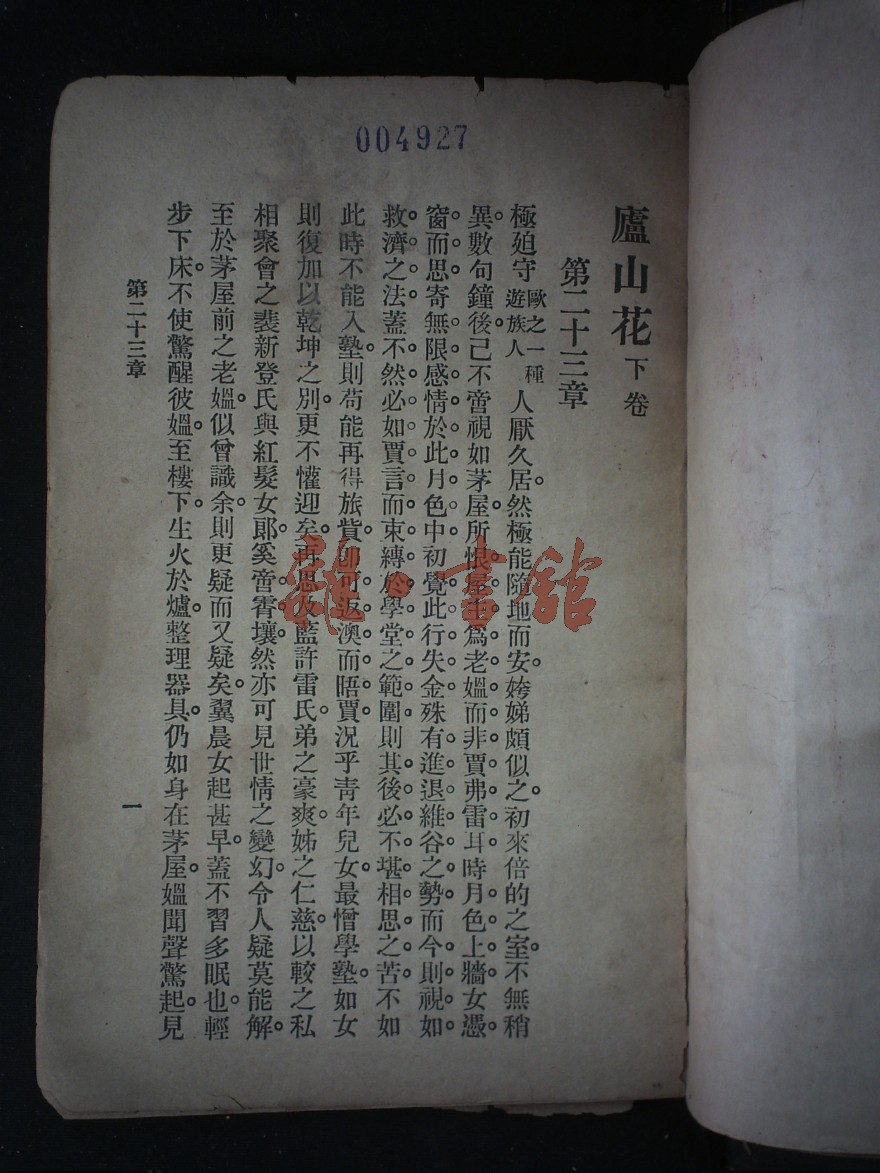 004927
廬山花 下卷
第二十三章
極廹守歐之一種遊族人人厭久居。然極能隨地而安。姱娣頗似之。初來倍的之室。不無稍
異。數句鐘後。已不啻視如茅屋。所恨屋主爲老媼而非賈弗雷耳。時月色上牆。女憑
窗而思。寄無限感情於此月色中。初覺此行失金。殊有進退維谷之勢。而今則視如
救濟之法。蓋不然必如賈言。而束縛於學堂之範圍。則其後必不堪相思之苦。不如
此時不能入塾。則苟能再得旅貲。卽可返澳而晤賈。況乎青年兒女。最憎學塾。如女
則復加以乾坤之別。更不懽迎矣。再思及藍許雷氏弟之豪爽。姊之仁慈。以較之私
相聚會之裴新登氏與紅髮女郞。奚啻霄壤。然亦可見世情之變幻。令人疑莫能解。
至於茅屋前之老媼。似曾識余。則更疑而又疑矣。翼晨女起甚早。蓋不習多眠也。輕
步下床。不使驚醒彼媼。至樓下。生火於爐。整理器具。仍如身在茅屋。媼聞聲驚起。見
第二十三章
一
雜·書館